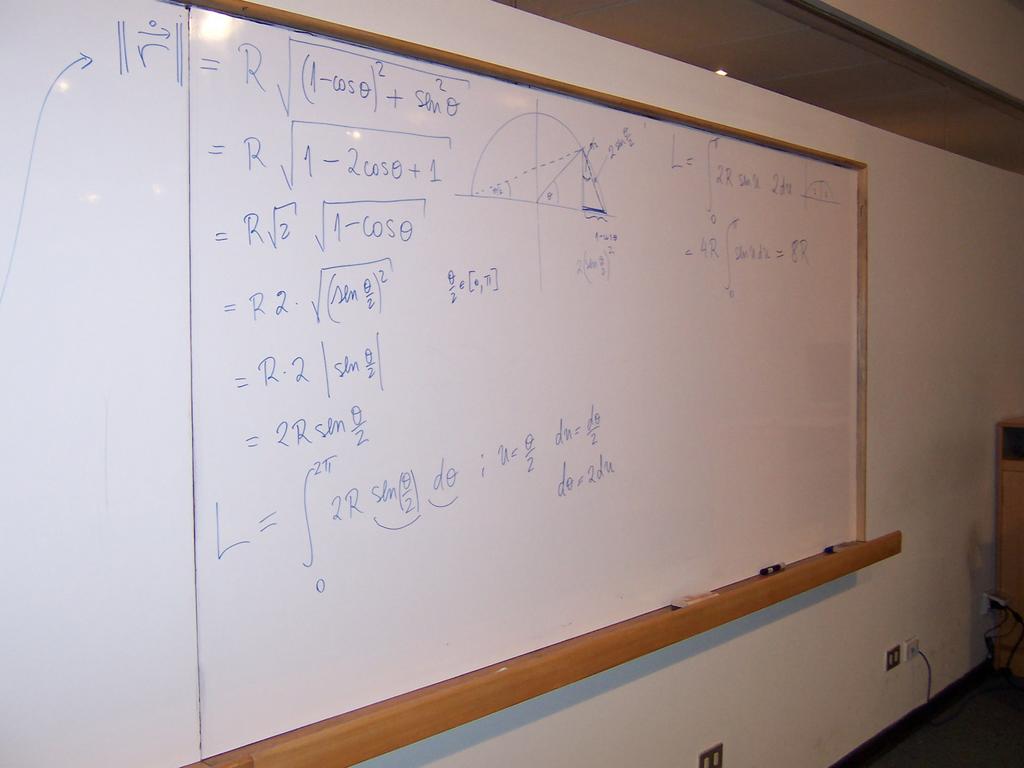 ‖ṙ⃗‖ = R √((1-cosθ)² + sen²θ)
= R √(1-2cosθ+1)
= R√2 √(1-cosθ)
= R 2 · √((sen θ/2)²)
θ/2 ∈ [0, π]
= R·2 |sen θ/2|
= 2R sen θ/2
L = ∫₀^2π 2R sen(θ/2) dθ ; u = θ/2 du = dθ/2
dθ = 2du
θ
2 sen θ/2
1-cosθ
2(sen θ/2)²
L = ∫₀^π 2R sen u 2du
= 4R ∫₀^π sen u du = 8R